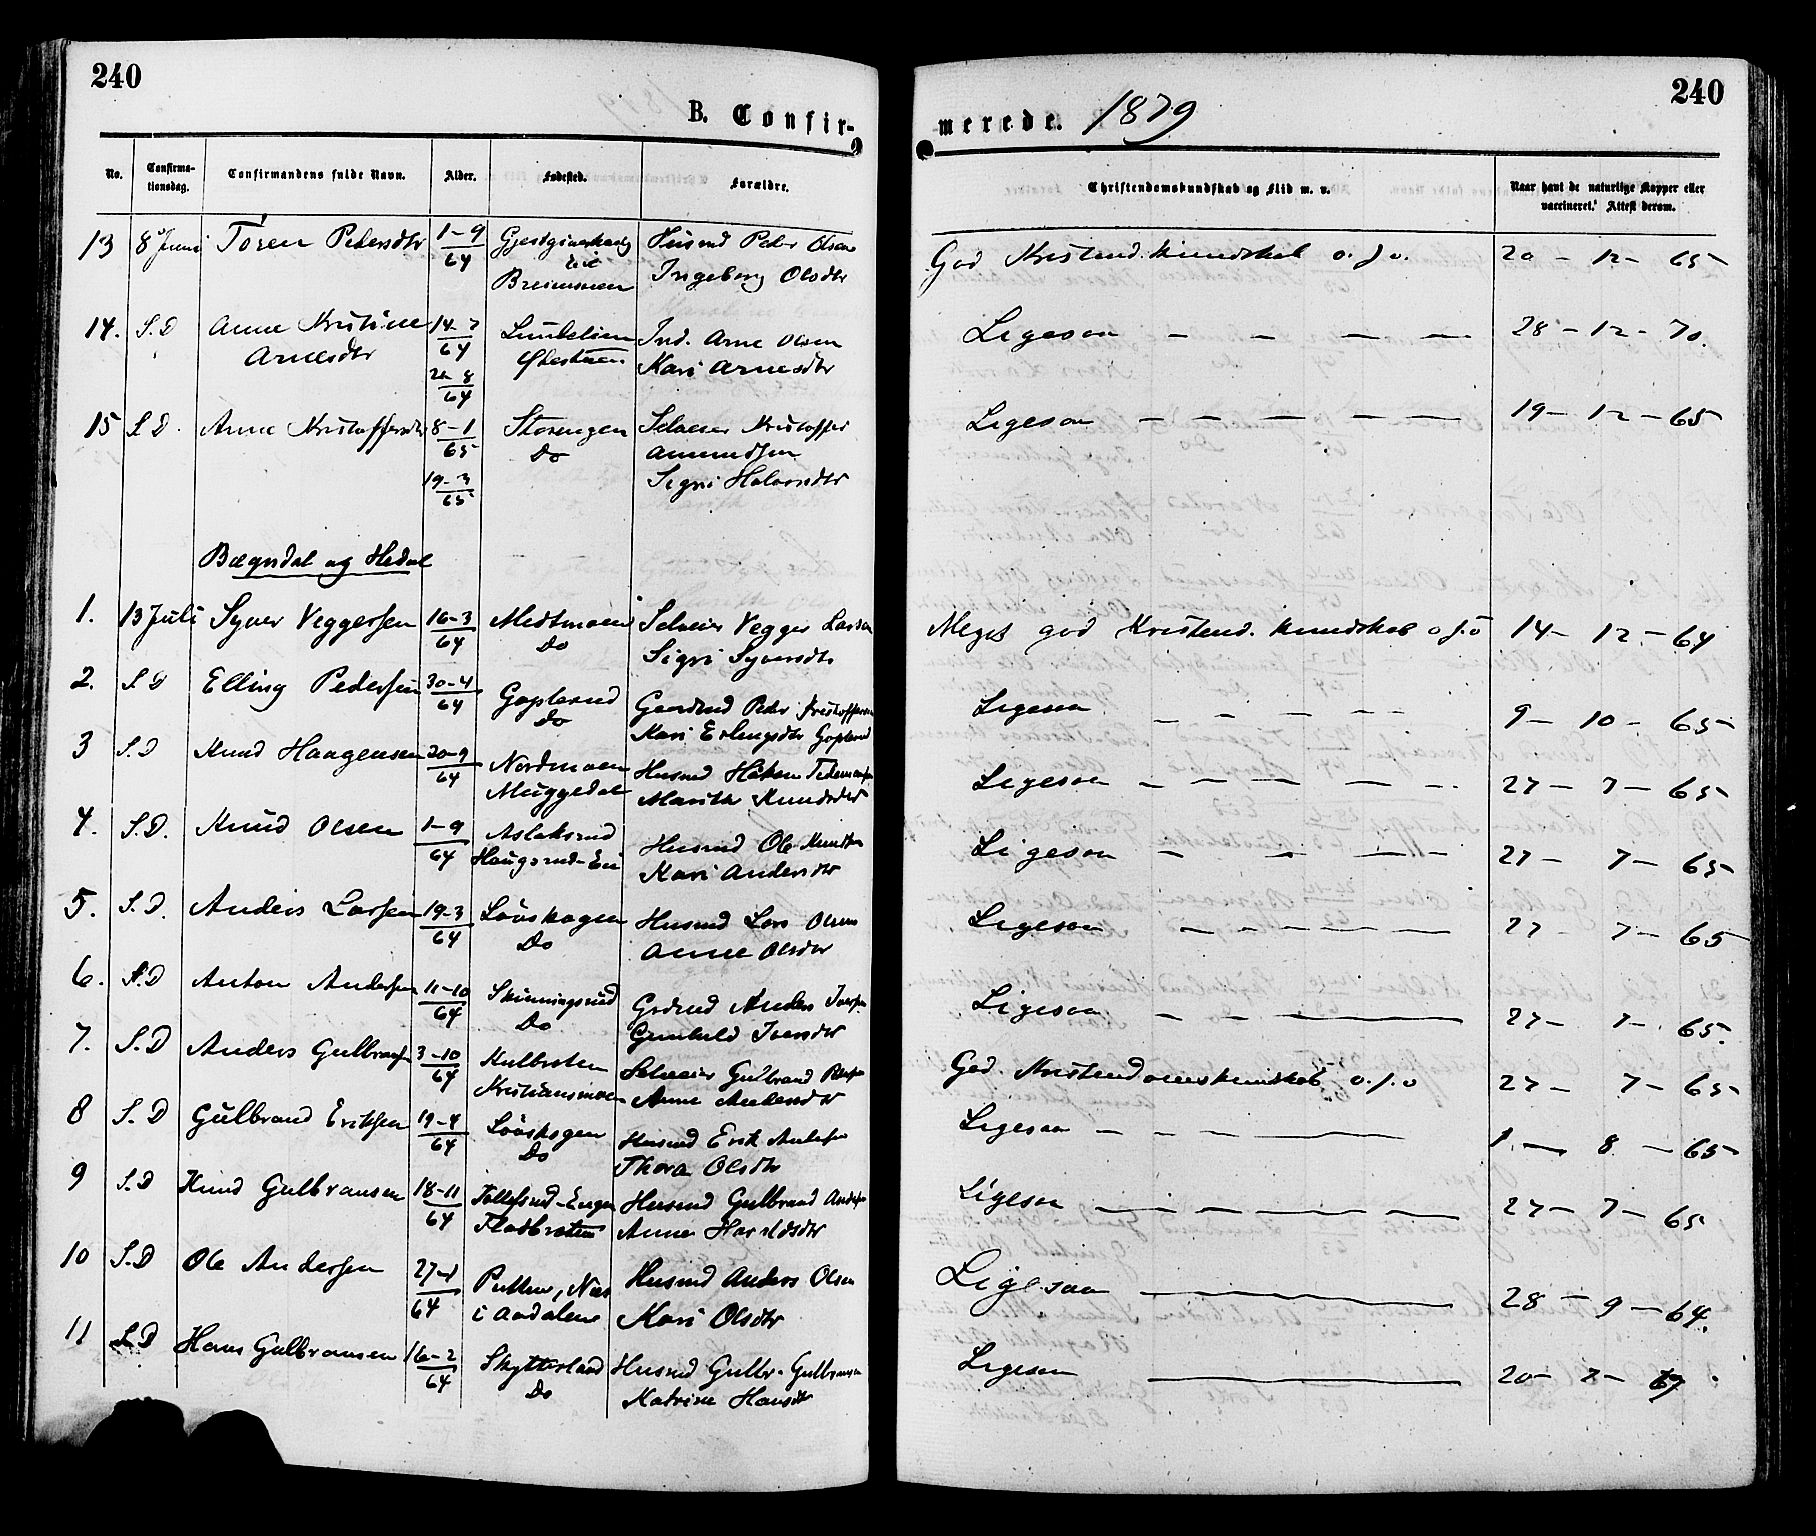 240
B. Confir-
No.
Confirma-
tionsdag.
Confirmandens fulde Navn.
Alder.
Fødested.
Forældre.
13 8 Juni Toren Pedersdtr 1-9
64
Breimmoen
Husmd Peder Olsen
Ingeborg Olsdtr
14. S.D Anne Kristine
Arnesdtr
14-7
64
20 8
64
Ind. Arne Olsen
Kari Arnesdtr
15 S.D. Anne Kristoffersdtr 8-1
65
19-3
65
Storengen
Do
Selveier Kristoffer
Amundsen
Sigri Halvorsdtr
Bægndal og Hedal
1. 13 Juli Syver Veggersen 16-3
64
Midtmoen
Do
Selveier Vegger Larsen
Sigri Syversdtr
2. S.D Elling Pedersen 30-4
64
Goplerud
Do
Gaardmd Peder Kristoffersen
Kari Erlingsdtr Goplerud
3 S.D Knud Haagensen 20-9
64
Nordmoen
Muggedal
Husmd Håken Tidemansen
Marith Knudsdtr
4. S.D. Knud Olsen 1-9
64
Aslaksrud
Haugsrud-Eie
Husmd Ole Knudsen
Kari Andersdtr
5. S.D. Anders Larsen 19-3
64
Løvskogen
Do
Husmd Lars Olsen
Anne Olsdtr
6. S.D Anton Andersen 11-10
64
Skinningsrud
Do
Grdmd Anders Iversen
Gunhild Iversdtr
7. S.D Anders Gulbransen 3-10
64
Kulbraten
Kristiansmoen
Selveier Gulbrand Pedersen
Anne Andersdtr
8 S.D Gulbrand Eriksen 19-4
64
Løvskogen
Do
Husmd Erik Andersen
Thora Olsdtr
9 S.D Knud Gulbransen 18-11
64
Tollefsrud-Engen
Fladbraten
Husmd Gulbrand Anders
Anne Haraldsdtr
10 S.D Ole Andersen 27-1
64
Putten, Næs
i Aadalen
Husmd Anders Olsen
Kari Olsdtr
11 S.D Hans Gulbransen 16-2
64
Skytterland
Do
Husmd Gulbr. Gulbransen
Katrine Hansdtr
240
merede. 1879
Christendomskundskab og Flid m. v.
Naar havt de naturlige Kopper eller
vaccineret. Attest derom.
God Kristend. kundskab o.f.v. 20 - 12 - 65
Ligesaa — — — — — 28 - 12 - 70.
Ligesaa — — — — — 19 - 12 - 65
Meget god Kristend. kundskab o.f.v 14 - 12 - 64
Ligesaa — — — — 9 - 10 - 65
Ligesaa — — — — — 27 - 7 - 65
Ligesaa — — — — 27 - 7 - 65
Ligesaa — — — — — 27 - 7 - 65
Ligesaa — — — 27 - 7 - 65.
God. Kristendomskundskab o.f.v 27 - 7 - 65
Ligesaa — — — 1 - 8 - 65
Ligesaa — — — 27 - 7 - 65
Ligesaa — 28 - 9 - 64.
Ligesaa — 20 - 7 - 67